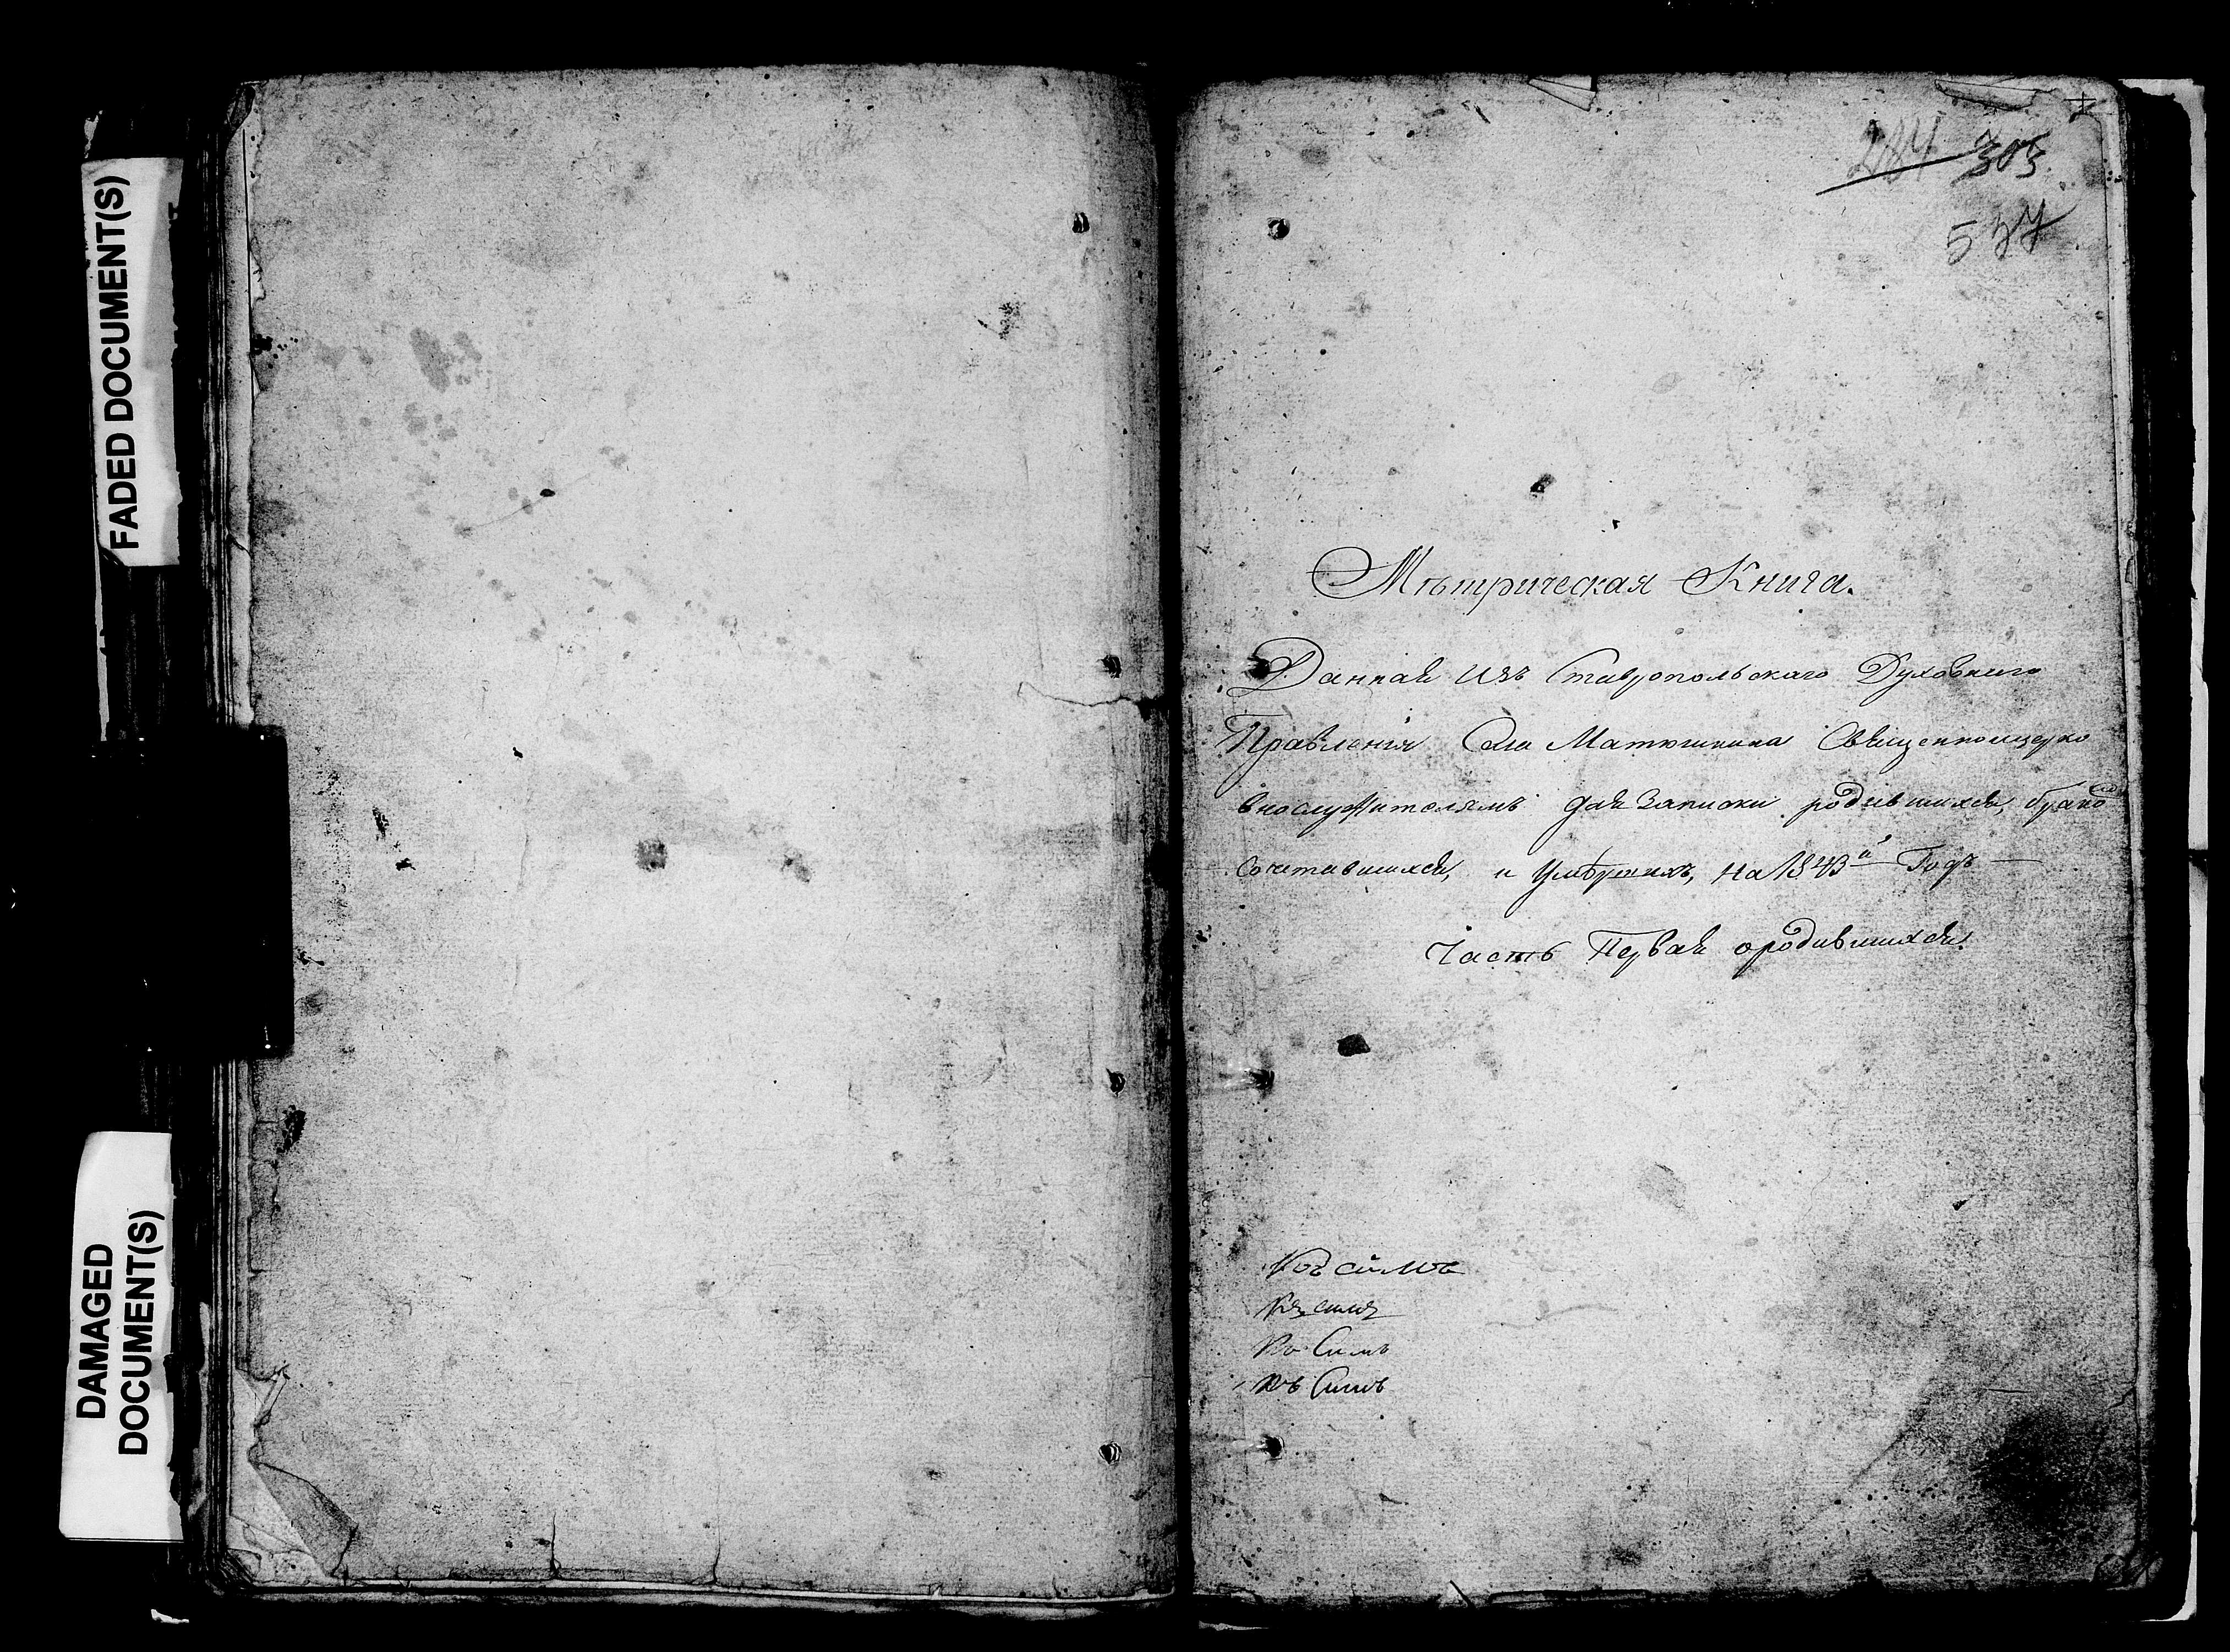 FADED DOCUMENT(S)
DAMAGED
DOCUMENT(S)
303
537
Мѣтрическая Книга.
Данная изъ Ставропольскаго Духовнаго
Правленія Села Матюшкина Священноцерко
внослужителямъ для Записки родившихся, брако
сочетавшихся, и Умершихъ, на 1843й Годъ
Часть Первая ородившихся.
Къ Симъ